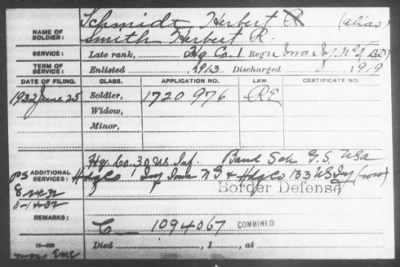 Schmidt, Herbert R (alias)
NAME OF SOLDIER: Smith Herbert R.
SERVICE: Late rank, Hq. Co. 1 Reg't Iowa Inf. N.G.
TERM OF SERVICE: Enlisted 1913 Discharged 1919
DATE OF FILING. CLASS. APPLICATION NO. LAW. CERTIFICATE NO.
1932 June 25 Soldier, 1720976
Widow,
Minor,
Hq. Co. 30 US Inf. Band Sch G.S. USA
ADDITIONAL SERVICES: HdqCo 1 Inf Iowa N G & HdqCo 133 US Inf (now)
Border Defense
REMARKS: C 1094067 COMBINED
Died , 1 , at